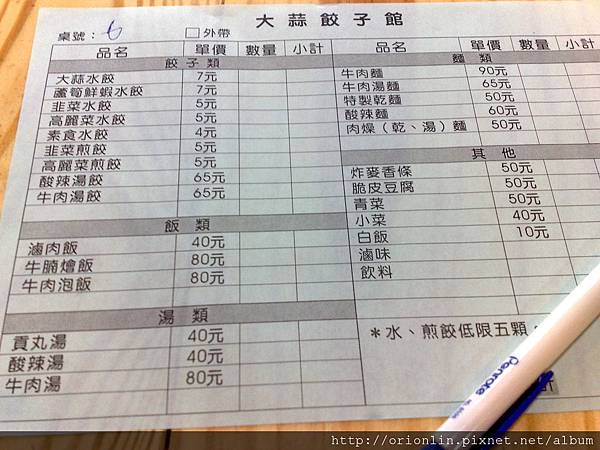 大蒜餃子館
桌號：6 □外帶
品名 單價 數量 小計
餃子類
大蒜水餃 7元
蘆筍鮮蝦水餃 7元
韭菜水餃 5元
高麗菜水餃 5元
素食水餃 4元
韭菜煎餃 5元
高麗菜煎餃 5元
酸辣湯餃 65元
牛肉湯餃 65元
飯類
滷肉飯 40元
牛腩燴飯 80元
牛肉泡飯 80元
湯類
貢丸湯 40元
酸辣湯 40元
牛肉湯 80元
品名 單價 數量 小計
麵類
牛肉麵 90元
牛肉湯麵 65元
特製乾麵 50元
酸辣麵 60元
肉燥（乾、湯）麵 50元
其他
炸麥香條 50元
脆皮豆腐 50元
青菜 50元
小菜 40元
白飯 10元
滷味
飲料
＊水、煎餃低限五顆。
計
http://orionlin.pixnet.net/album